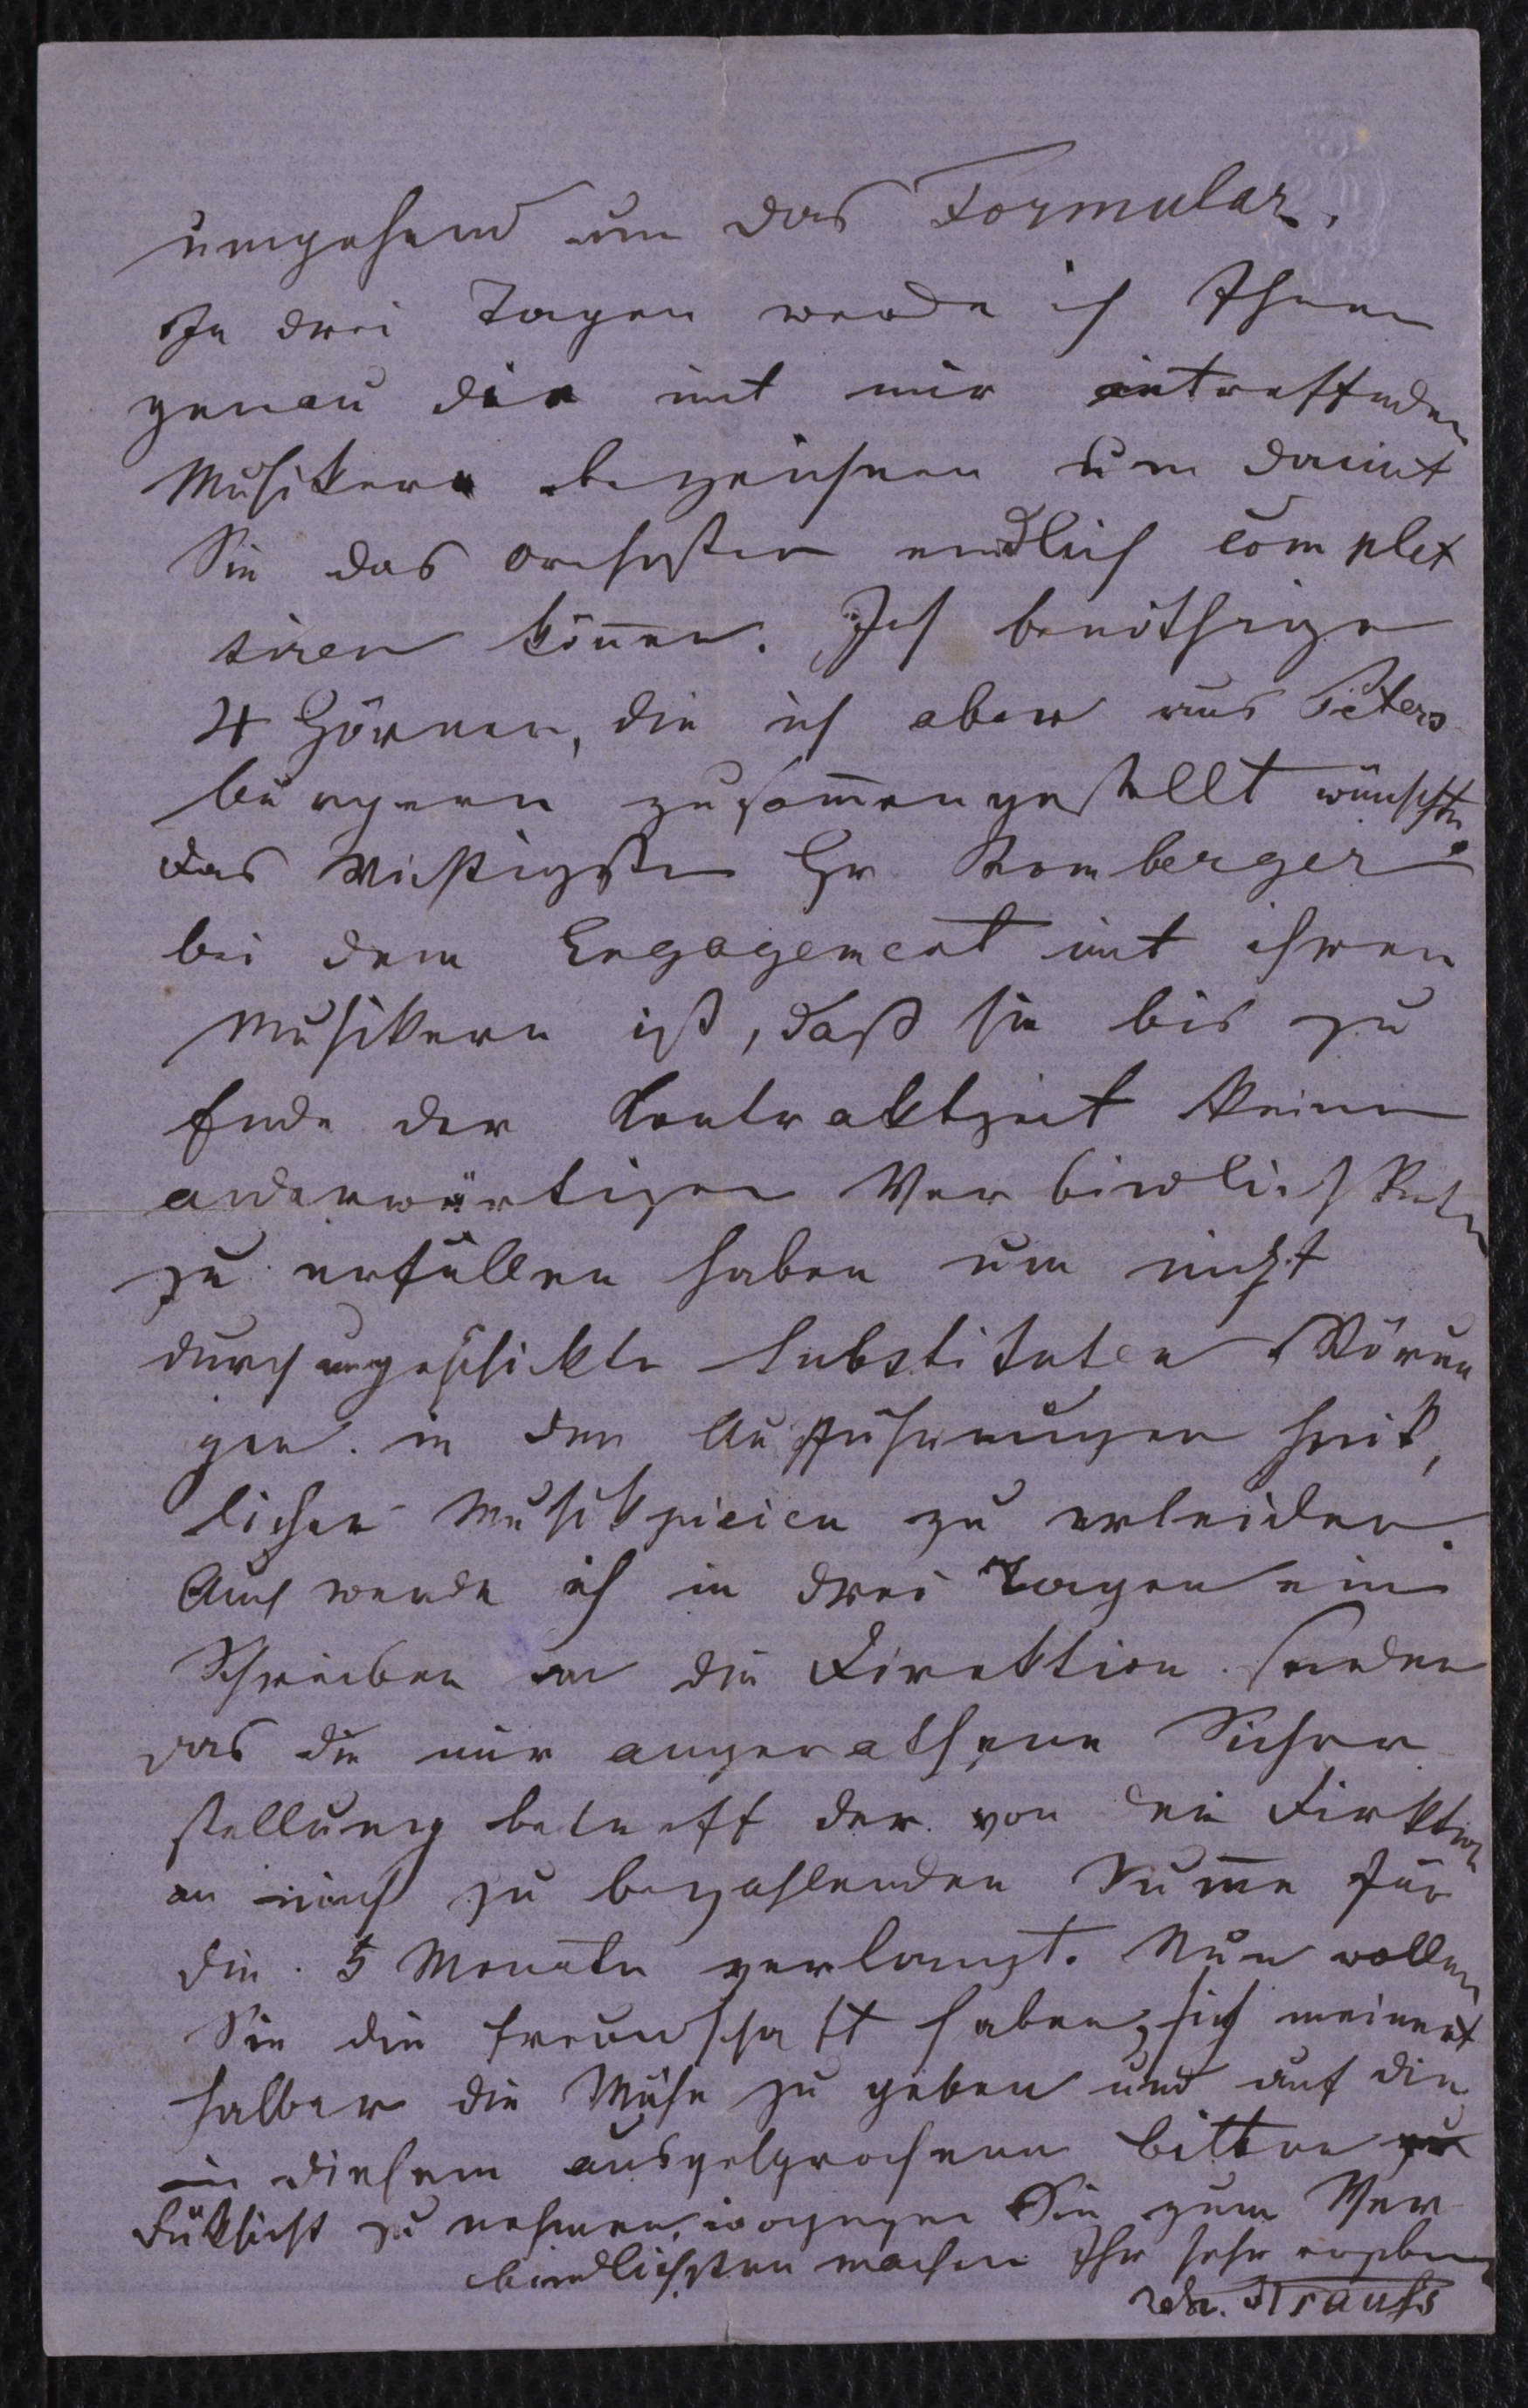 umgehend um das Formular.
In drei Tagen werde ich Ihnen
genau die mit mir eintreffenden
Musikern bezeichnen um damit
Sie das Orchester endlich complet
tiren können. Ich benöthige
4 Hörner, die ich aber aus Peters
burgern zusam̄engestellt wünschte.
Das Wichtigste Hr Romberger
bei dem Engagement mit ihren
Musikern ist, daß sie bis zu
Ende der Kontraktzeit keine
anderwärtigen Verbindlichkeiten
zu erfüllen haben um nicht
durch ungeschikte Substituten Störun
gen in den Aufführungen
licher Musikpieicen zu erleiden.
Auch werde ich in drei Tagen ein
Schreiben an die Direktion senden
das die mir angerathene Sicher
stellung betreff der von der Direktion
an mich zu bezahlenden Sum̄e für
die 5 Monate verlangt. Nun wollen
Sie die Freundschaft haben, sich meinet
halber die Mühe zu geben und auf die
in diesem ausgesprochenen Bitten
Rüksicht zu nehmen, wogegen Sie zum Ver
bindlichsten machen Ihr sehr ergebener
Joh. Strauss